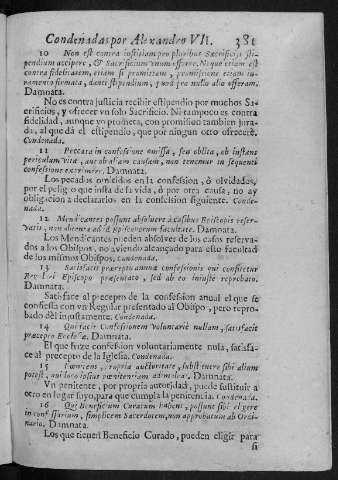 Condenadas por Alexandro VII. 381
10 Non est contra iustitiam pro pluribus Sacrificijs sti-
pendium accipere, & Sacrificium unum offerre. Neque etiam est
contra fidelitatem, etiam si promittam, promissione etiam iu-
ramento firmata, danti stipendium, quod pro nullo alio offeram.
Damnata.
No es contra justicia recibir estipendio por muchos Sa-
crificios, y ofrecer vn solo Sacrificio. Ni tampoco es contra
fidelidad, aunque yo prometa, con promission tambien jura-
da, al que dà el estipendio, que por ningun otro ofrecerè.
Condenada.
11 Peccata in confessione omissa, seu oblita, ob instans
periculum vitæ, aut ob aliam causam, non tenemur in sequenti
confessione exprimere. Damnata.
Los pecados omitidos en la confession, ò olvidados,
por el peligro que insta de la vida, ò por otra causa, no ay
obligacion à declararlos en la confession siguiente. Conde-
nada.
12 Mendicantes possunt absolvere à casibus Episcopis reser-
vatis, non obtenta ad id Episcoporum facultate. Damnata.
Los Mendicantes pueden absolver de los casos reserva-
dos à los Obispos, no aviendo alcançado para esso facultad
de los mismos Obispos. Condenada.
13 Satisfacit præcepto annuæ confessionis qui confitetur
Regulari Episcopo præsentato, sed ab eo iniustè reprobato.
Damnata.
Satisface al precepto de la confession anual el que se
confiessa con vn Regular presentado al Obispo, pero repro-
bado dèl injustamente. Condenada.
14 Qui facit Confessionem voluntariè nullam, satisfacit
præcepto Ecclesiæ. Damnata.
El que hize confession voluntariamente nula, satisfa-
ce al precepto de la Iglesia. Condenada.
15 Pœnitens, propria auctoritate, substituere sibi alium
potest, qui loco ipsius pœnitentiam adimpleat. Damnata.
Vn penitente, por propria autoridad, puede sustituir a
otro en lugar suyo, para que cumpla la penitencia. Condenada.
16 Qui Beneficium Curatum habent, possunt sibi eligere
in confessarium, simplicem Sacerdotem, non approbatum ab Ordi-
nario. Damnata.
Los que tienen Beneficio Curado, pueden eligir para
si